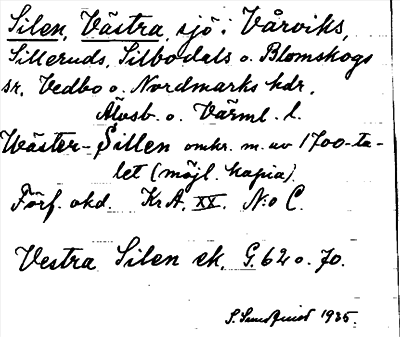 Silen, Västra, sjö i Vårviks,
Silleruds, Silbodals o. Blomskogs
sr, Vedbo o. Nordmarks hdr,
Älvsb. o. Värml. l.
Wäster-Sillen omkr. m. av 1700-ta-
let (möjl. kopia).
Förf. okd. KrA. XX. N:o C.
Vestra Silen ek. G. 62 o. 70.
S. Sundqvist 1935.